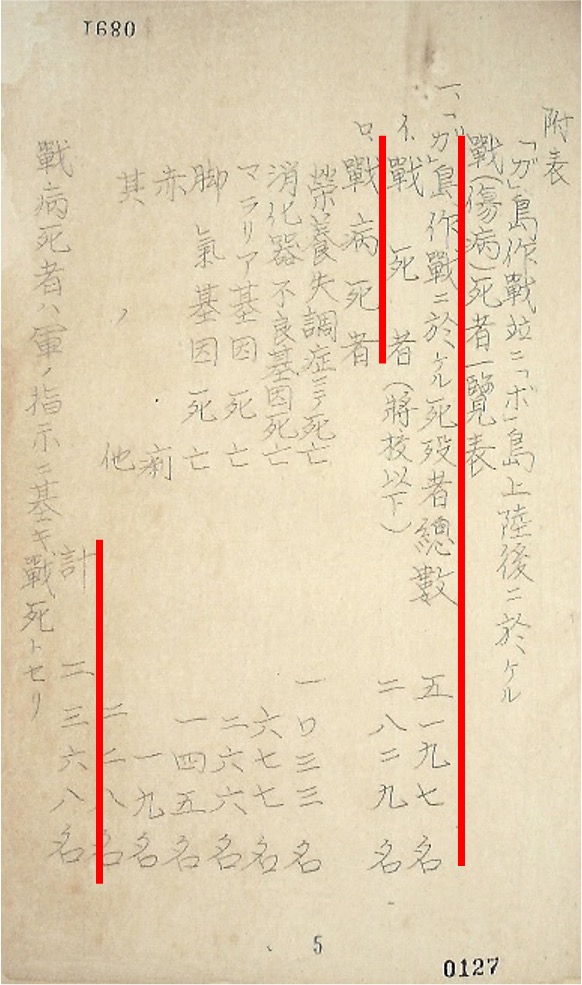 1680
附表
「ガ」島作戰竝ニ「ボ」島上陸後ニ於ケル
戰(傷病)死者一覽表
一、「ガ」島作戰ニ於ケル死歿者總數 五一九七名
イ、戰死者(將校以下) 二八二九名
ロ、戰病死者
榮養失調症ニテ死亡 一〇三三名
消化器不良基因死亡 六七七名
マラリア基因死亡 二六六名
脚氣基因死亡 一四五名
赤痢 一九名
其ノ他 二二八名
計 二三六八名
戰病死者ハ軍ノ指示ニ基キ戰死トセリ
5
0127